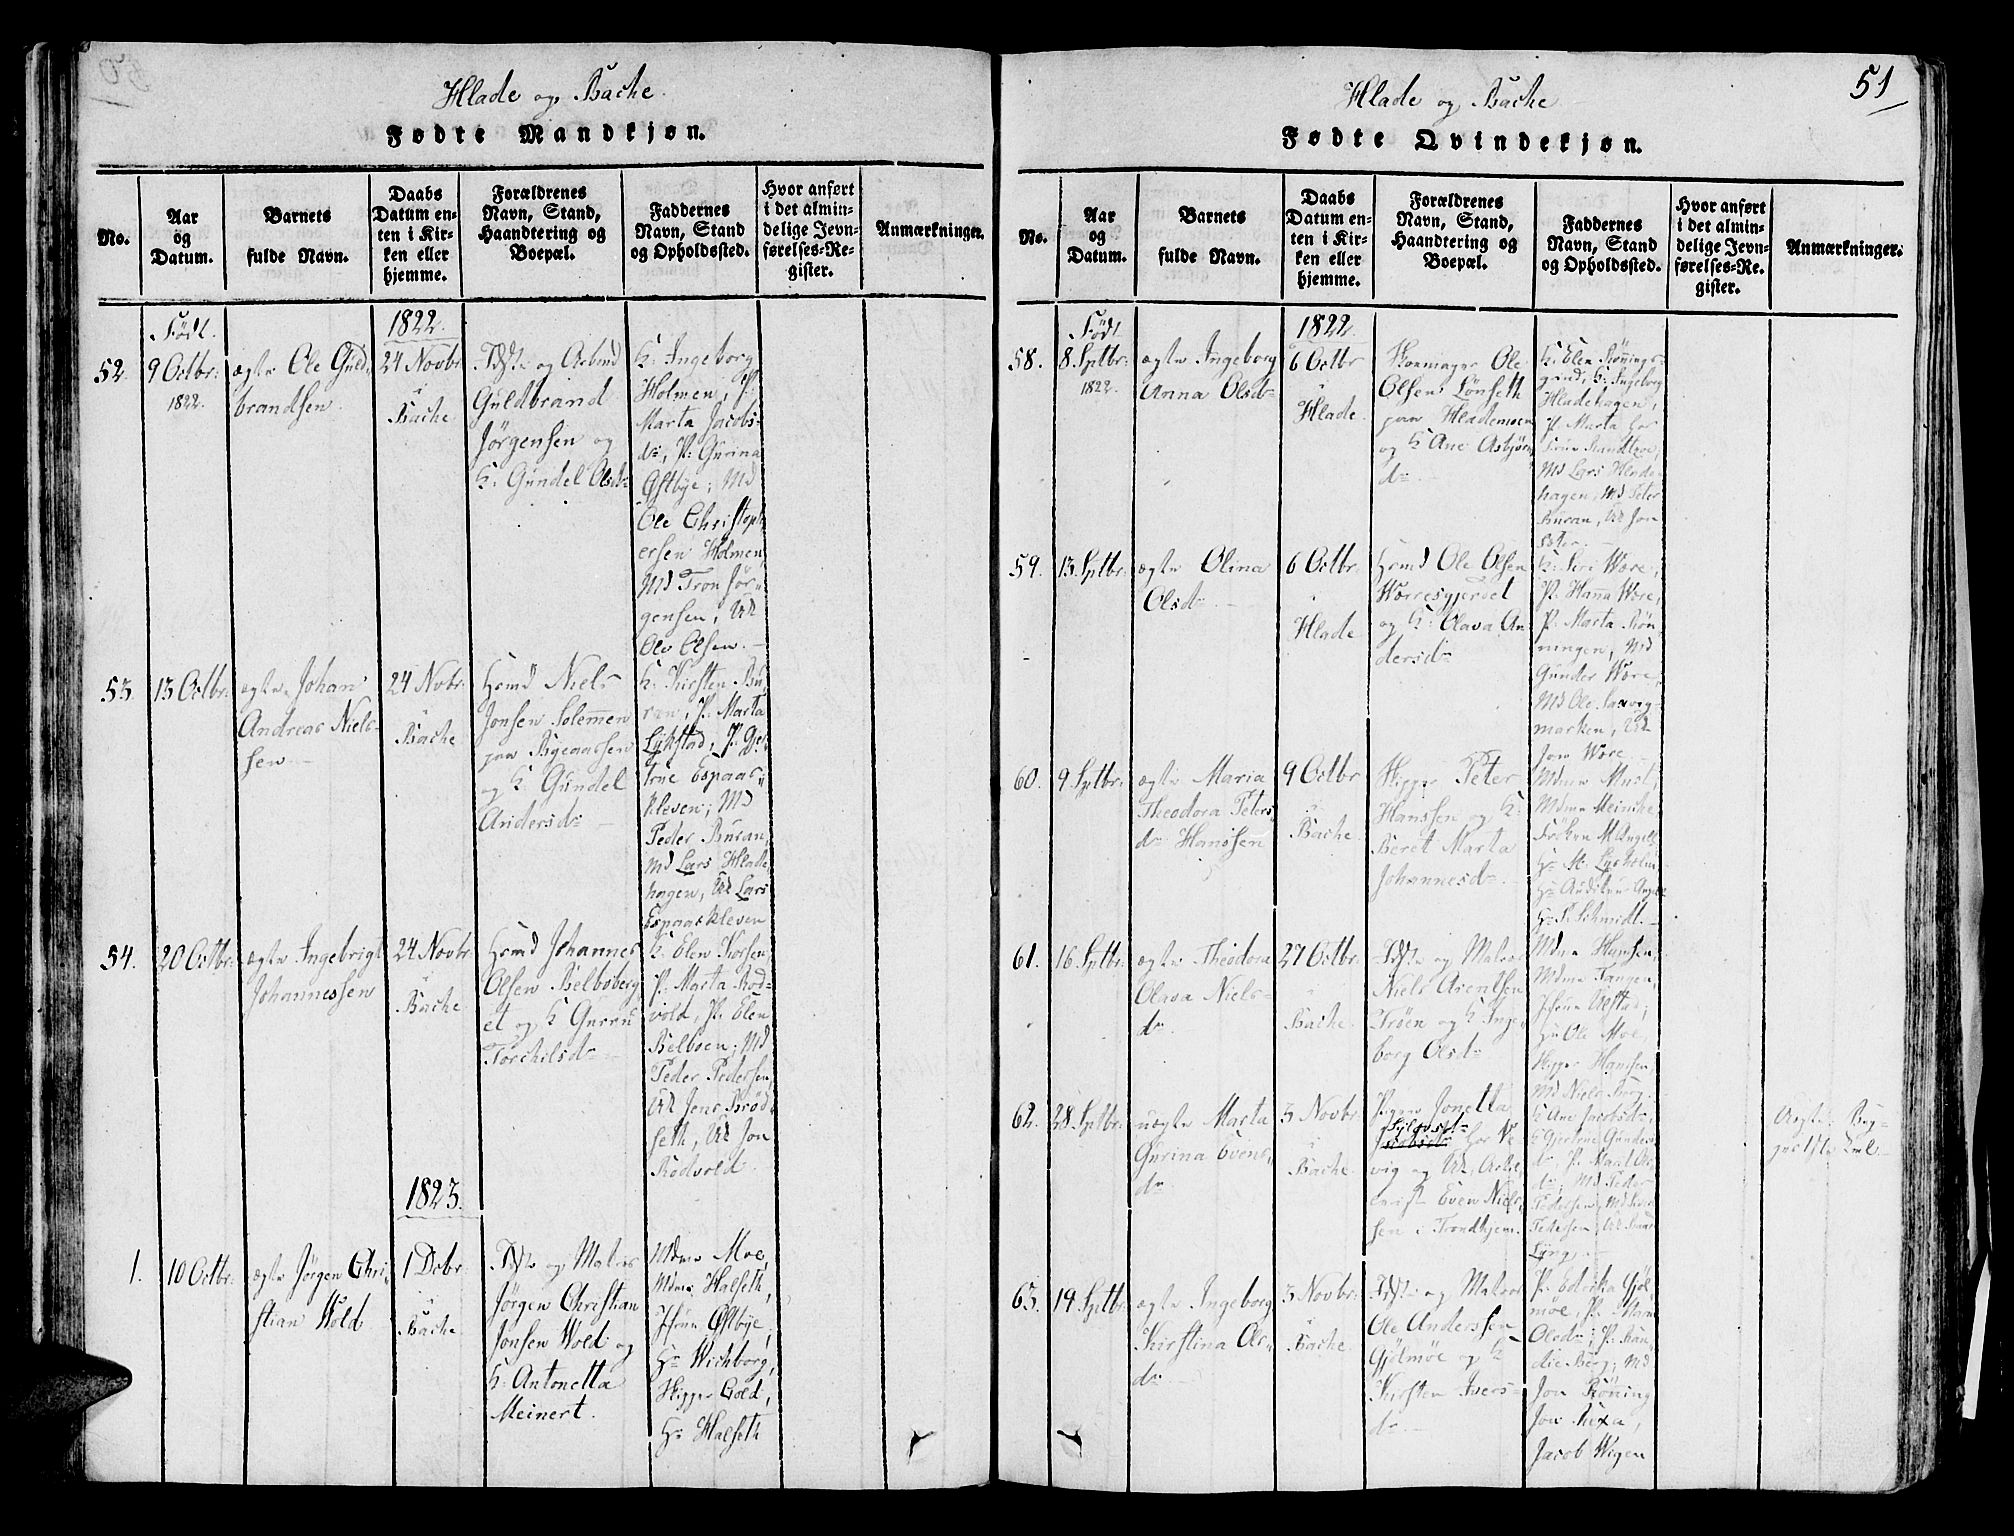 Hlade og Bache.
Fødte Mandkjøn.
No.
Aar
og
Datum.
Barnets
fulde Navn.
Daabs
Datum en-
ten i Kir-
ken eller
hjemme.
Forældrenes
Navn, Stand,
Haandtering og
Boepæl.
Faddernes
Navn, Stand
og Opholdssted.
Hvor anført
i det almin-
delige Jevn-
førelses-Re-
gister.
Anmærkninger.
Født.
1822.
52.
9 Octbr:
1822.
ægte Ole Guld-
brandsen.
24 Novbr
i
Bache
og Arbmd
Guldbrand
Jørgensen og
K: Gundel Olsd:
K: Ingeborg
Holmen, P:
Marta Jacobs-
dr, P: Gurina
Østbye; Md
Ole Christoph-
ersen Holmen,
Md Tron Jør-
gensen, Uk
Ole Olsen.
53.
13 Octbr:
ægte Johan
Andreas Niels-
sen
24 Nvbr.
i
Bache
Hsmd Niels
Jonsen Solemen
paa Byeaassen
og K: Gundel
Andersdr
K: Kirsten Bu-
ran, P: Marta
Lykstad, P: Ge-
true Espaas-
kleven; Md
Peder Buran,
Md Lars Hlade-
hagen, Uk Lars
Espaaskleven
54.
20 Octbr:
ægte Ingebrigt
Johannessen
24 Novbr
i
Bache
Hsmd Johannes
Olsen Belboberg-
et og K Gurru
Torchilsdr
K: Elen Korsen,
P: Marta Rod-
vold, P: Elen
Belboen; Md
Peder Pedersen,
Uk Jens Brød-
seth, Uk Jon
Rodvold.
1823.
1.
10 Octbr:
ægte Jørgen Chri-
stian Wold
1 Dcbr
i
Bache
og Matros
Jørgen Christian
Jonsen Wold og
K: Antonetta
Meinert.
Mdme Moe,
Mdme Halseth,
Jfrue Østbye,
Hr Wichborg,
Skipper Gold,
Hr Halseth
51
Hlade og Bache
Fødte Qvindekjøn.
No.
Aar
og
Datum.
Barnets
fulde Navn.
Daabs
Datum en-
ten i Kir-
ken eller
hjemme.
Forældrenes
Navn, Stand,
Haandtering og
Boepæl.
Faddernes
Navn, Stand
og Opholdssted.
Hvor anført
i det almin-
delige Jevn-
førelses-Re-
gister.
Anmærkninger.
Født
1822.
58.
8. Sptbr:
1822.
ægte Ingeborg
Anna Olsdr
6 Octbr
i
Hlade.
Skomager Ole
Olsen Lønseth
paa Hlademoen
og K Ane Asbjørn-
dr
K: Elen Rønnings-
grind, K: Ingeborg
Hladehagen,
P: Marta hos
Md Lars Hlade-
hagen, Md Peter
Buran, Uk Jon
59.
13. Sptbr:
ægte Olina
Olsdr
6 Octbr.
i
Hlade
Hsmd Ole Olsen
Worresgjerdet
og K: Olava An-
dersdr
K: Siri Wore,
P: Hanna Wore,
P: Marta Røn-
ningen, Md
Gunder Wore,
Md Ole
marken, Uk
Jon Wore
60.
9. Sptbr:
ægte Maria
Theodora Peters-
dr Hanssen
9 Octbr
i
Bache
Skipper Peter
Hanssen og K:
Beret Marta
Johannesdr
Mdme Must,
Mdme Meincke,
Frøken M Angell,
Hr A. Lysholm
Hr Auditeur Angell
Hr P: Schmidt.
61.
16. Sptbr:
ægte Theodora
Olava Niels-
dr
27 Octbr.
i
Bache
og Matros
Niels Arentsen
Trøen og K: Inge-
borg Olsdr
Mdme Hansen,
Mdme Tangen,
Hr Ole Moe,
Skipper Hansen,
Md Niels Berg
62.
28. Sptbr:
uægte Marta
Gurina Evens-
dr
3 Novbr
i
Bache.
Pigen Jonetta
vig og Uk Artil-
lerist Even Niels-
sen i Trondhjem.
K Ane Jacobsdr,
K Gjertrue Gunders-
dr, P. Marit Ols-
dr; Md Peder
Pedersen, Md
Petersen, Uk
Lyng.
63.
19. Sptbr:
ægte Ingeborg
Kirstina Ols-
dr
3 Novbr:
i
Bache
og Matros
Ole Anderssen
Gjølmoe og K
Kirsten Ivers-
dr
P: Edrikka Gjøl-
moe, P:
Olsdr; P: Ran-
die Berg; Md
Jon Rønning
Jon Rixa,
Jacob Wigen